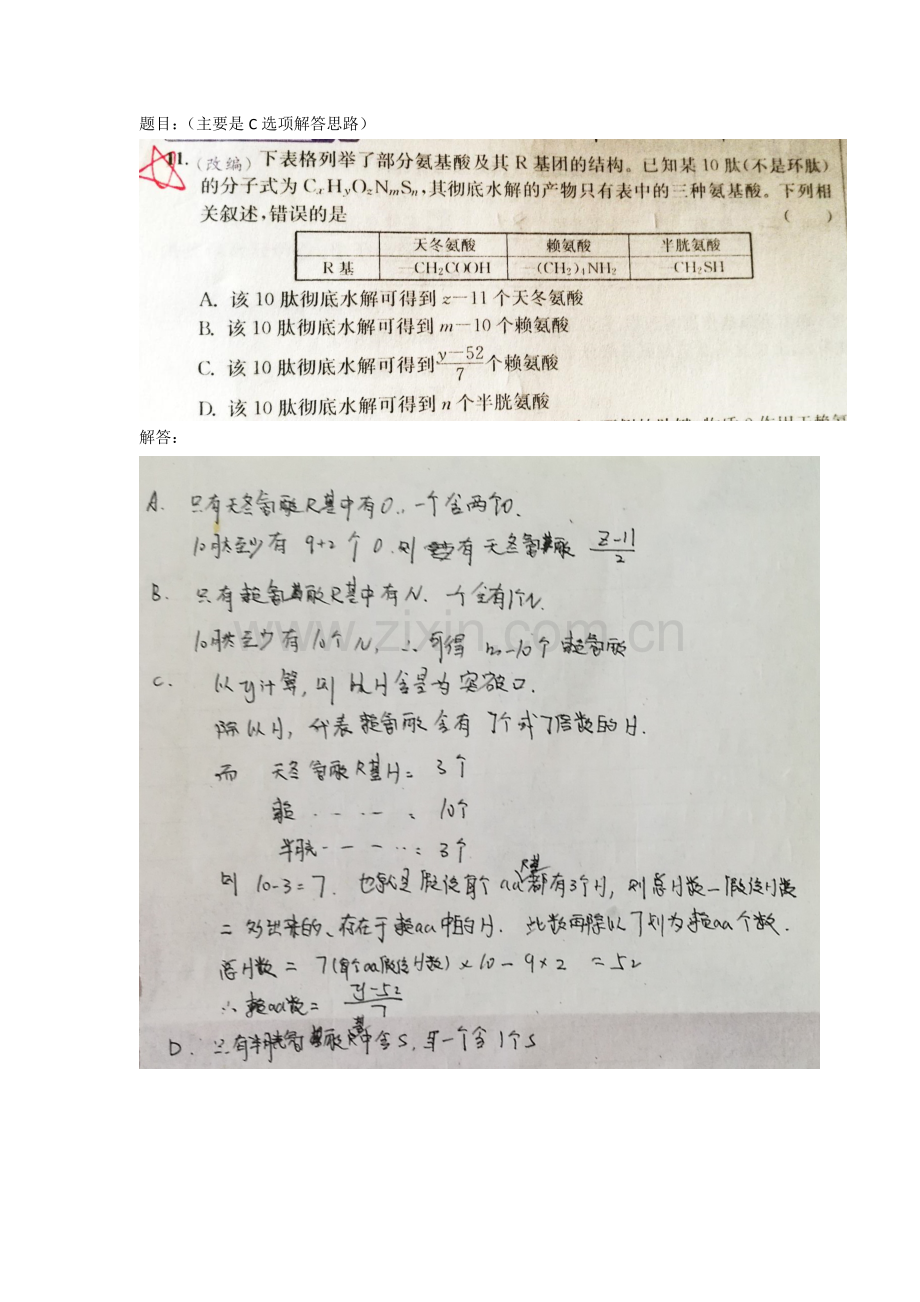 题目:（主要是 C 选项解答思路）
11.（改编）下表格列举了部分氨基酸及其 R 基团的结构。已知某 10 肽(不是环肽)
的分子式为 CxHyOzNmSn,其彻底水解的产物只有表中的三种氨基酸。下列相
关叙述,错误的是 (  )
天冬氨酸 赖氨酸 半胱氨酸
R 基 —CH2COOH —(CH2)4NH2 —CH2SH
A. 该 10 肽彻底水解可得到 z-11 个天冬氨酸
B. 该 10 肽彻底水解可得到 m-10 个赖氨酸
C. 该 10 肽彻底水解可得到 (y-52)/7 个赖氨酸
D. 该 10 肽彻底水解可得到 n 个半胱氨酸
解答:
A. 只有天冬氨酸R基中有O,一个含两个O.
10肽至少有 9+2 个 O.则有天冬氨酸 (z-11)/2
B. 只有赖氨酸R基中有N.一个含有1个N.
10肽至少有10个N,∴可得 m-10个赖氨酸
www.zixin.com.cn
C. 以y计算,则以H含量为突破口.
除以7,代表赖氨酸含有7个或7倍数的H.
而 天冬氨酸R基H= 3个
赖 ---- = 10个
半胱 ---- = 3个
则 10-3=7. 也就是假设每个aaR基都有3个H,则总H数-假设H数
=多出来的、存在于赖aa中的H. 此数再除以7则为赖aa个数.
总H数 = 7(每个aa假设H数)×10-9×2 =52
∴赖aa数= (y-52)/7
D. 只有半胱氨酸R基中含S,且一个含1个S